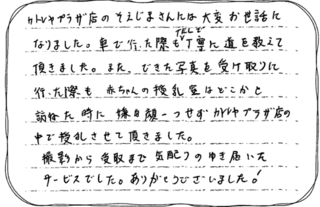 カトレヤプラザ店のそえじまさんには大変お世話に
なりました。車で行った際もTELで丁寧に道を教えて
頂きました。また、でき写真を受け取りに
行った際も 赤ちゃんの授乳室はどこかと
訪ねた時に 嫌な顔一つせずカトレヤプラザ店の
中で授乳させて頂きました。
撮影から受取まで気配りのゆき届いた
サービスでした。ありがとうございました!